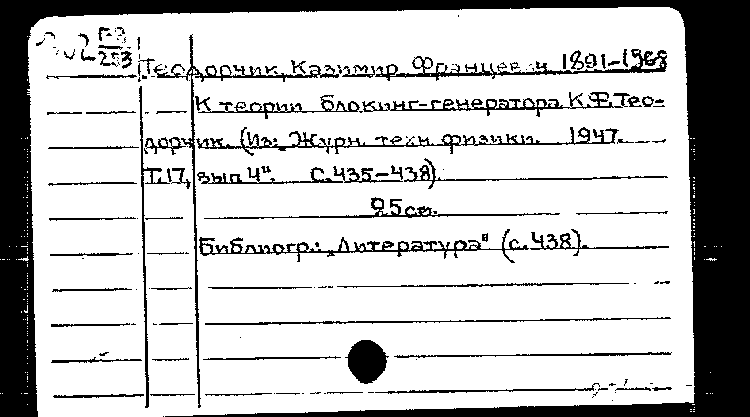 Теодорчик, Казимир Францевич 1891-1968
К теории блокинг-генератора К.Ф.Тео-
дорчик. (Из: „Журн. техн. физики. 1947.
Т.17, вып 4". С.435-438).
25см.
Библиогр.: „Литература" (с.438).